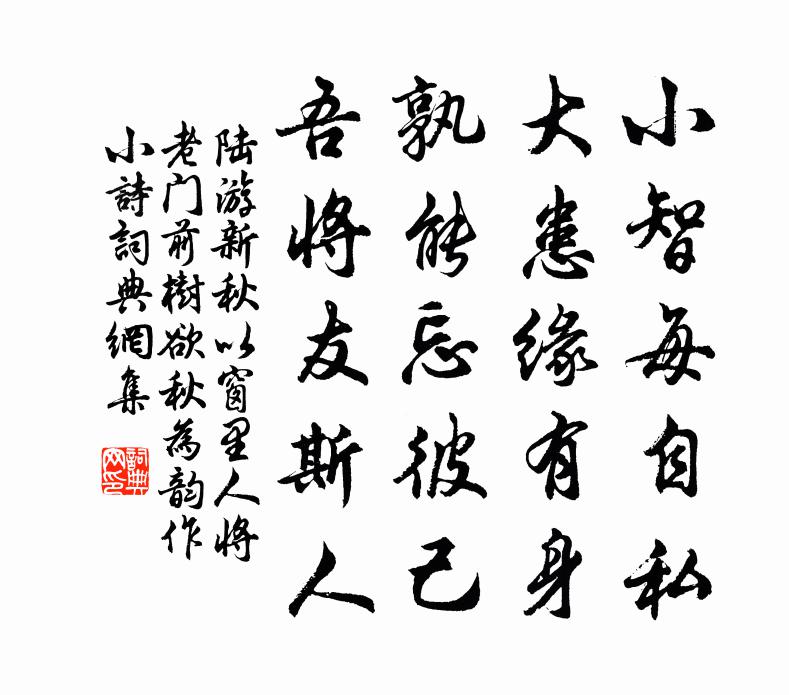 小智每自私
大患缘有身
孰能忘彼己
吾将友斯人
陆游新秋以窗里人将
老门前樹欲秋為韵作
小詩詞典網集
詞典
网印